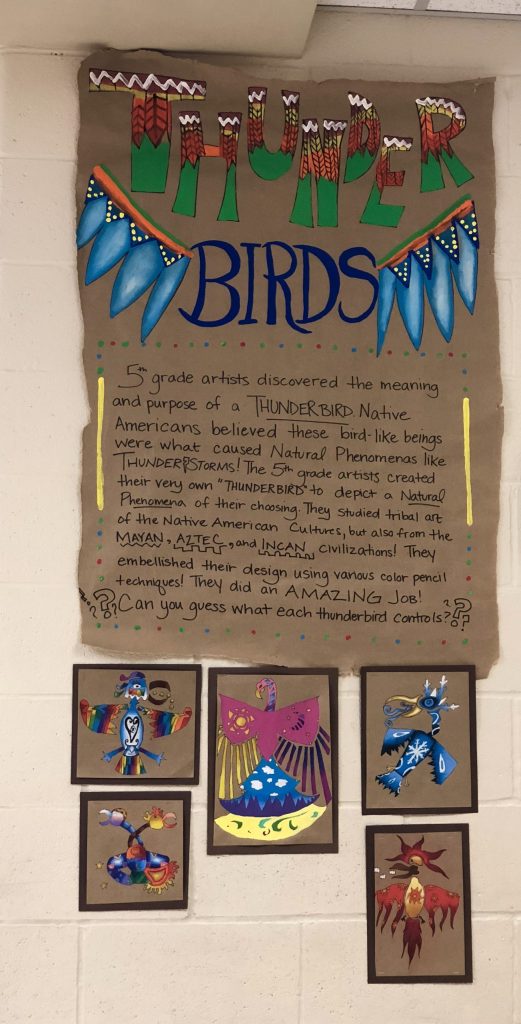 THUNDER
BIRDS
5th grade artists discovered the meaning
and purpose of a THUNDERBIRD. Native
Americans believed these bird-like beings
were what caused Natural Phenomenas like
THUNDERSTORMS! The 5th grade artists created
their very own "THUNDERBIRDS" to depict a Natural
Phenomena of their choosing. They studied tribal art
of the Native American Cultures, but also from the
MAYAN, AZTEC, and INCAN civilizations! They
embellished their design using various color pencil
techniques! They did an AMAZING JOB!
??? Can you guess what each thunderbird controls???